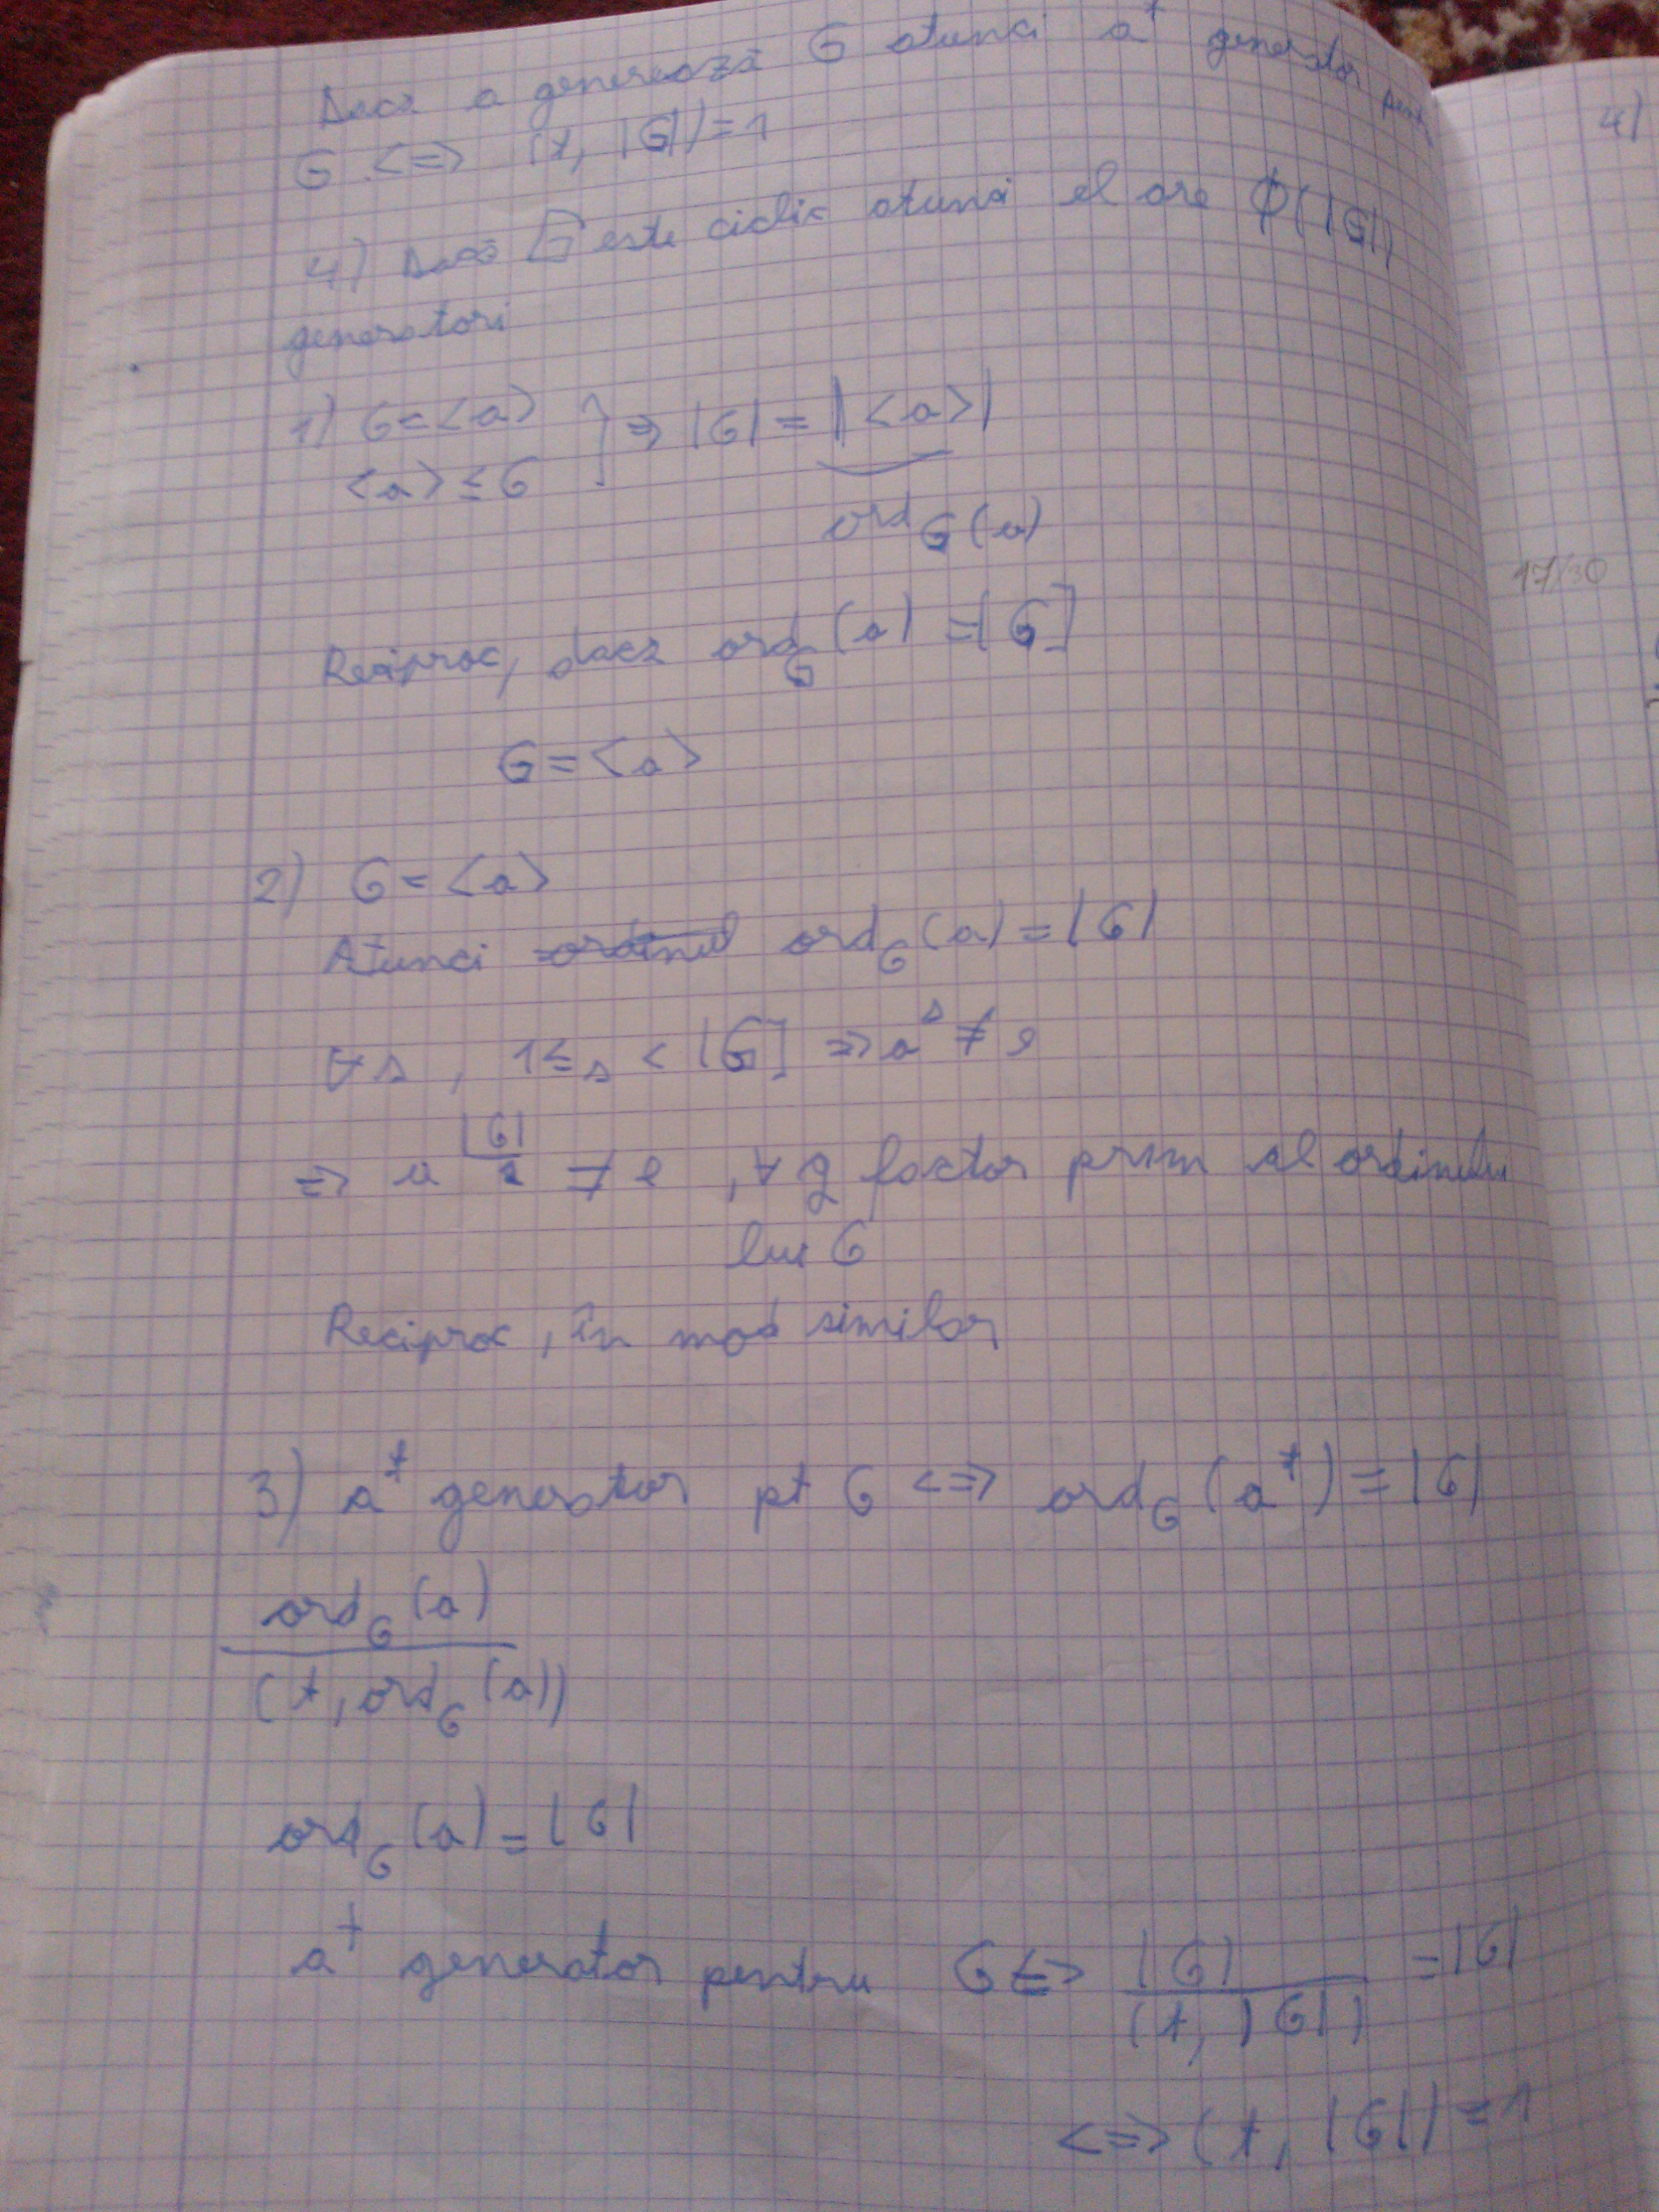 Dacă a generează G atunci a^t generator pentru
G <=> (t, |G|) = 1
4) Dacă G este ciclic atunci el are ϕ(|G|)
generatori
1) G = <a>
<a> ≤ G } => |G| = |<a>|
ord_G(a)
Reciproc, dacă ord_G(a) = |G|
G = <a>
2) G = <a>
Atunci ordinul ord_G(a) = |G|
∀ s, 1 ≤ s < |G| => a^s ≠ e
=> a^(|G|/q) ≠ e, ∀ q factor prim al ordinului
lui G
Reciproc, în mod similar
3) a^t generator pt G <=> ord_G(a^t) = |G|
ord_G(a)
(t, ord_G(a))
ord_G(a) = |G|
a^t generator pentru G <=> |G|/(t, |G|) = |G|
<=> (t, |G|) = 1
4)
17/30